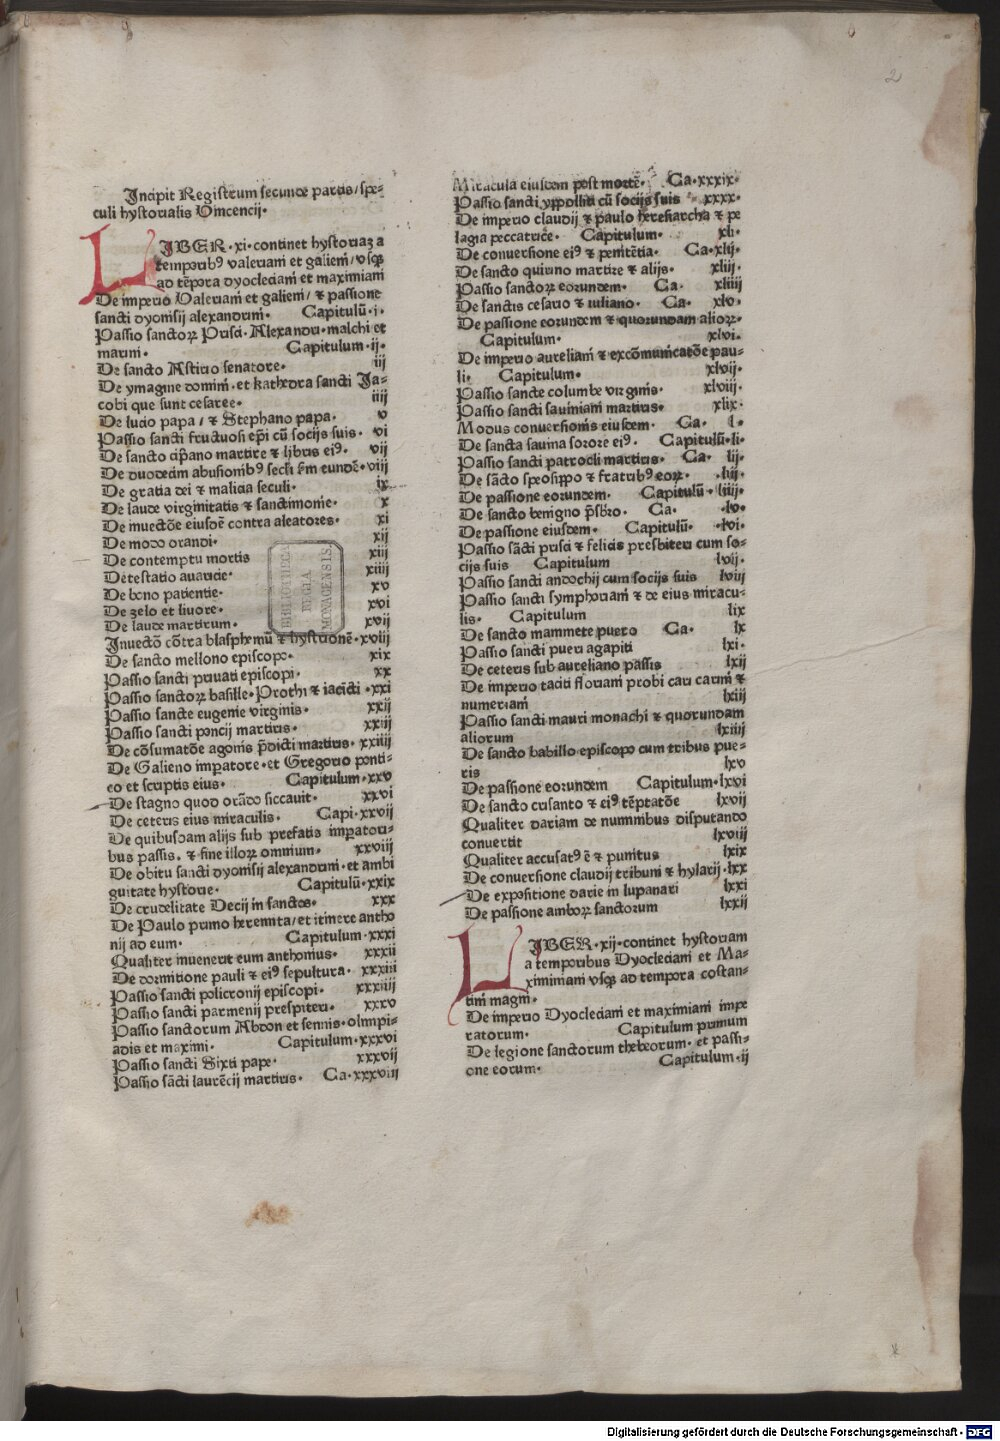 2
Incipit Registrum secunde partis / spe-
culi hystorialis Vincencij.
LIBER . xi . continet hystoriaꝫ a
temporibꝰ valeriani et galieni / vsqꝫ
ad tēpora dyocleciani et maximiani
De imperio Valeriani et galieni / ⁊ passione
sancti dyonisij alexandrini. Capitulū . i .
Passio sanctoꝝ Prisci . Alexandri . malchi et
marini. Capitulum . ij .
De sancto Astirio senatore. iij
De ymagine domini . et kathedra sancti Ja-
cobi que sunt cesaree. iiij
De lucio papa / ⁊ Stephano papa. v
Passio sancti fructuosi ep̄i cū socijs suis. vi
De sancto cip̄ano martire ⁊ libris eiꝰ. vij
De duodecim abusionibꝰ secli ẜm eundē. viij
De gratia dei ⁊ malicia seculi. ix
De laude virginitatis ⁊ sanctimonie. x
De inuectōe eiusdē contra aleatores. xi
De modo orandi. xij
De contemptu mortis xiij
Detestatio auaricie. xiiij
De bono patientie. xv
De zelo et liuore. xvi
De laude martirum. xvij
Inuectō cōtra blasphemū ⁊ hystrionē. xviij
De sancto mellono episcopo. xix
Passio sancti priuati episcopi. xx
Passio sanctoꝝ basille . Prothi ⁊ iacīcti . xxi
Passio sancte eugenie virginis. xxij
Passio sancti poncij martiris. xxiij
De cōsumatōe agonis p̄dicti martiris. xxiiij
De Galieno imperatore . et Gregorio ponti-
co et scriptis eius. Capitulum . xxv
De stagno quod orādo siccauit. xxvi
De ceteris eius miraculis. Capi . xxvij
De quibusdam alijs sub prefatis imperatori-
bus passis . ⁊ fine illoꝝ omnium. xxviij
De obitu sancti dyonisij alexandrini . et ambi
guitate hystorie. Capitulū . xxix
De crudelitate Decij in sanctos. xxx
De Paulo primo heremita / et itinere antho
nij ad eum. Capitulum . xxxi
Qualiter inuenerit eum anthonius. xxxij
De dormitione pauli ⁊ eiꝰ sepultura. xxxiij
Passio sancti policronij episcopi. xxxiiij
Passio sancti parmenij prespiteri. xxxv
Passio sanctorum Abdon et sennis . olimpi-
adis et maximi. Capitulum . xxxvi
Passio sancti Sixti pape. xxxvij
Passio sācti laurēcij martiris. Ca . xxxviij
BIBLIOTHECA
REGIA
MONACENSIS.
Miracula eiusdem post mortē. Ca . xxxix .
Passio sancti yppoliti cū socijs suis xxxx .
De imperio claudij ⁊ paulo heresiarcha ⁊ pe
lagia peccatrice. Capitulum. xli .
De conuersione eiꝰ ⁊ penitētia. Ca . xlij .
De sancto quirino martire ⁊ alijs. xliij .
Passio sanctoꝝ eorundem. Ca . xliiij
De sanctis cesario ⁊ iuliano. Ca . xlv .
De passione eorundem ⁊ quorundam alioꝝ.
Capitulum. xlvi .
De imperio aureliani ⁊ excōmunicatōe pau-
li. Capitulum. xlvij .
Passio sancte columbe virginis. xlviij .
Passio sancti sauiniani martiris. xlix .
Modus conuersionis eiusdem. Ca . l .
De sancta sauina sorore eiꝰ. Capitulū . li .
Passio sancti patrocli martiris. Ca . lij .
De sācto speosippo ⁊ fratribꝰ eoꝝ. liij .
De passione eorundem. Capitulū . liiij .
De sancto benigno p̄sbr̄o. Ca . lv .
De passione eiusdem. Capitulū . lvi .
Passio sācti prisci ⁊ felicis presbiteri cum so-
cijs suis Capitulum lvij .
Passio sancti andochij cum socijs suis lviij
Passio sancti symphoriani ⁊ de eius miracu-
lis. Capitulum lix
De sancto mammete puero Ca . lx
Passio sancti pueri agapiti lxi .
De ceteris sub aureliano passis lxij
De imperio taciti floriani probi cari carini ⁊
numeriani lxiij
Passio sancti mauri monachi ⁊ quorundam
aliorum lxiiij
De sancto babillo episcopo cum tribus pue-
ris lxv
De passione eorundem Capitulum . lxvi
De sancto crisanto ⁊ eiꝰ tēptatōe lxvij
Qualiter dariam de numinibus disputando
conuertit lxviij
Qualiter accusatꝰ ē ⁊ punitus lxix
De conuersione claudij tribuni ⁊ hylarij . lxx
De expositione darie in lupanari lxxi
De passione amboꝝ sanctorum lxxij
LIBER . xij . continet hystoriam
a temporibus Dyocleciani et Ma-
ximiniani vsqꝫ ad tempora costan-
tini magni.
De imperio Dyocleciani et maximiani impe
ratorum. Capitulum primum
De legione sanctorum thebeorum . et passi-
one eorum. Capitulum . ij
Digitalisierung gefördert durch die Deutsche Forschungsgemeinschaft - DFG